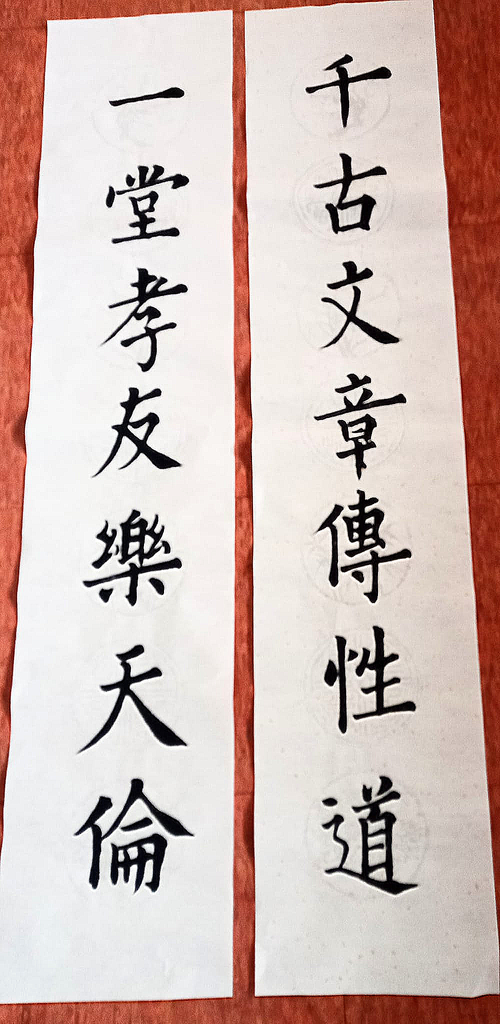 千古文章傳性道
一堂孝友樂天倫